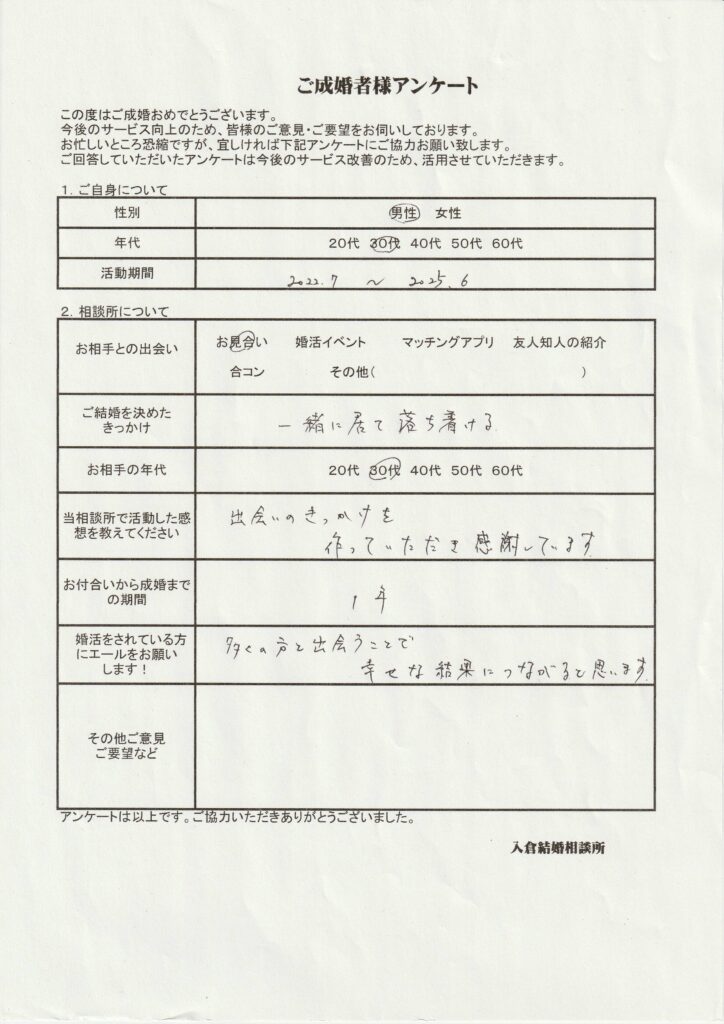 ご成婚者様アンケート
この度はご成婚おめでとうございます。
今後のサービス向上のため、皆様のご意見・ご要望をお伺いしております。
お忙しいところ恐縮ですが、宜しければ下記アンケートにご協力お願い致します。
ご回答していただいたアンケートは今後のサービス改善のため、活用させていただきます。
1. ご自身について
性別 男性 女性
年代 20代 30代 40代 50代 60代
活動期間 2022.7 ~ 2025.6
2. 相談所について
お相手との出会い お見合い 婚活イベント マッチングアプリ 友人知人の紹介
合コン その他( )
ご結婚を決めた
きっかけ
一緒に居て落ち着ける
お相手の年代 20代 30代 40代 50代 60代
当相談所で活動した感
想を教えてください
出会いのきっかけを
作っていただき感謝しています
お付合いから成婚まで
の期間
1年
婚活をされている方
にエールをお願い
します!
多くの方と出会うことで
幸せな結果につながると思います
その他ご意見
ご要望など
アンケートは以上です。ご協力いただきありがとうございました。
入倉結婚相談所